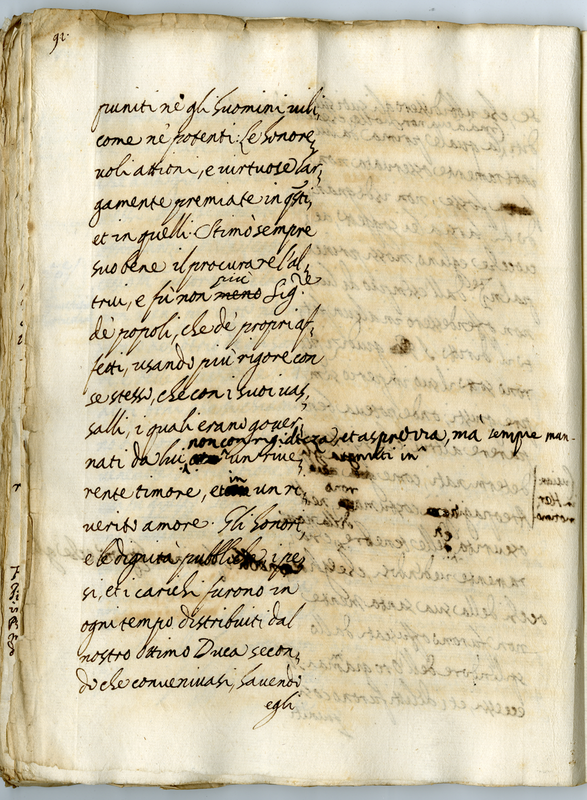 92.
puniti ne gli huomini vili,
come ne potenti: Le honore,
uoli attioni, e uirtuose lar,
gamente premiate in q̃sti,
et in quelli. Stimò sempre
suo bene il procurare l'al,
trui, e fù non meno più Sig.re
de popoli, che de proprij af,
fetti, usando più rigore con
se stesso, che con i suoi uas,
salli, i quali erano gouer,
non con rigidezza, et asprezza, ma sempre man-
nati da lui un riue, tenuti in
rente timore, et in un ri,
uerito amore. Gli honori,
e le dignità publiche, i pe,
si, et i carichi furono in
ogni tempo distribuiti dal
nostro ottimo Duca secon,
do che conueniuasi, hauendo
egli